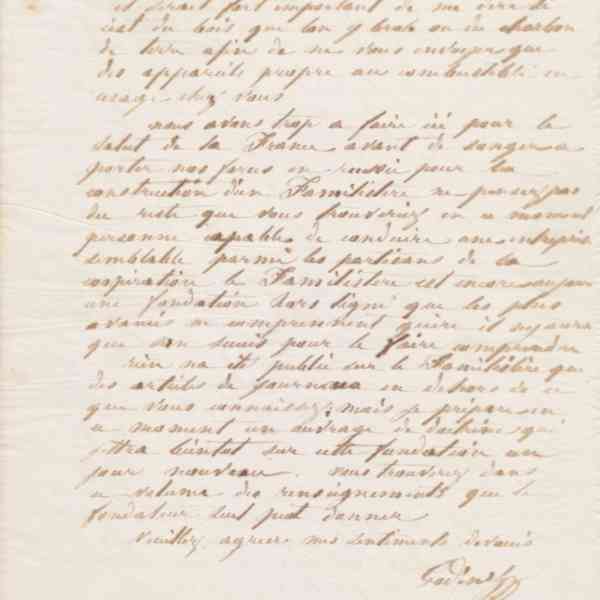 il serait fort important de me dire si
c'est du bois que lon y brule ou du charbon
de terre afin de ne vous envoyer que
des appareils propre au combustible en
usage chez vous
nous avons trop a faire ici pour le
salut de la France avant de songer a
porter nos forces en russie pour la
construction d'un Familistère ne pensez pas
du reste que vous trouveriez en ce moment
personne capable de conduire une entreprise
semblable parmi les partisans de la
coopération le Familistère est encore aujour
une fondation hors ligne que les plus
avancés ne comprennent guère il n'y aura
que son succès pour le faire comprendre
rien na été publié sur le Familistère que
des articles de journaux en dehors de ce
que vous connaissez, mais je prépare en
ce moment un ouvrage de doctrine qui
jettra bientot sur cette fondation un
jour nouveau. vous trouverez dans
ce volume des renseignements que le
fondateur seul peut donner
Veuillez agréer mes sentiments devoués
Godin